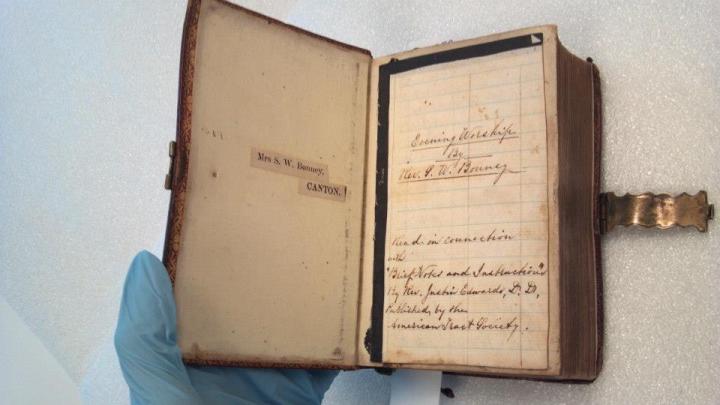 Mrs S. W. Bonney,
CANTON.
Evening Worship
By
Rev. S. W. Bonney
Read in connection
with
"Brief Notes and Instructions"
By Rev. Justin Edwards, D. D,
Published by the
American Tract Society.